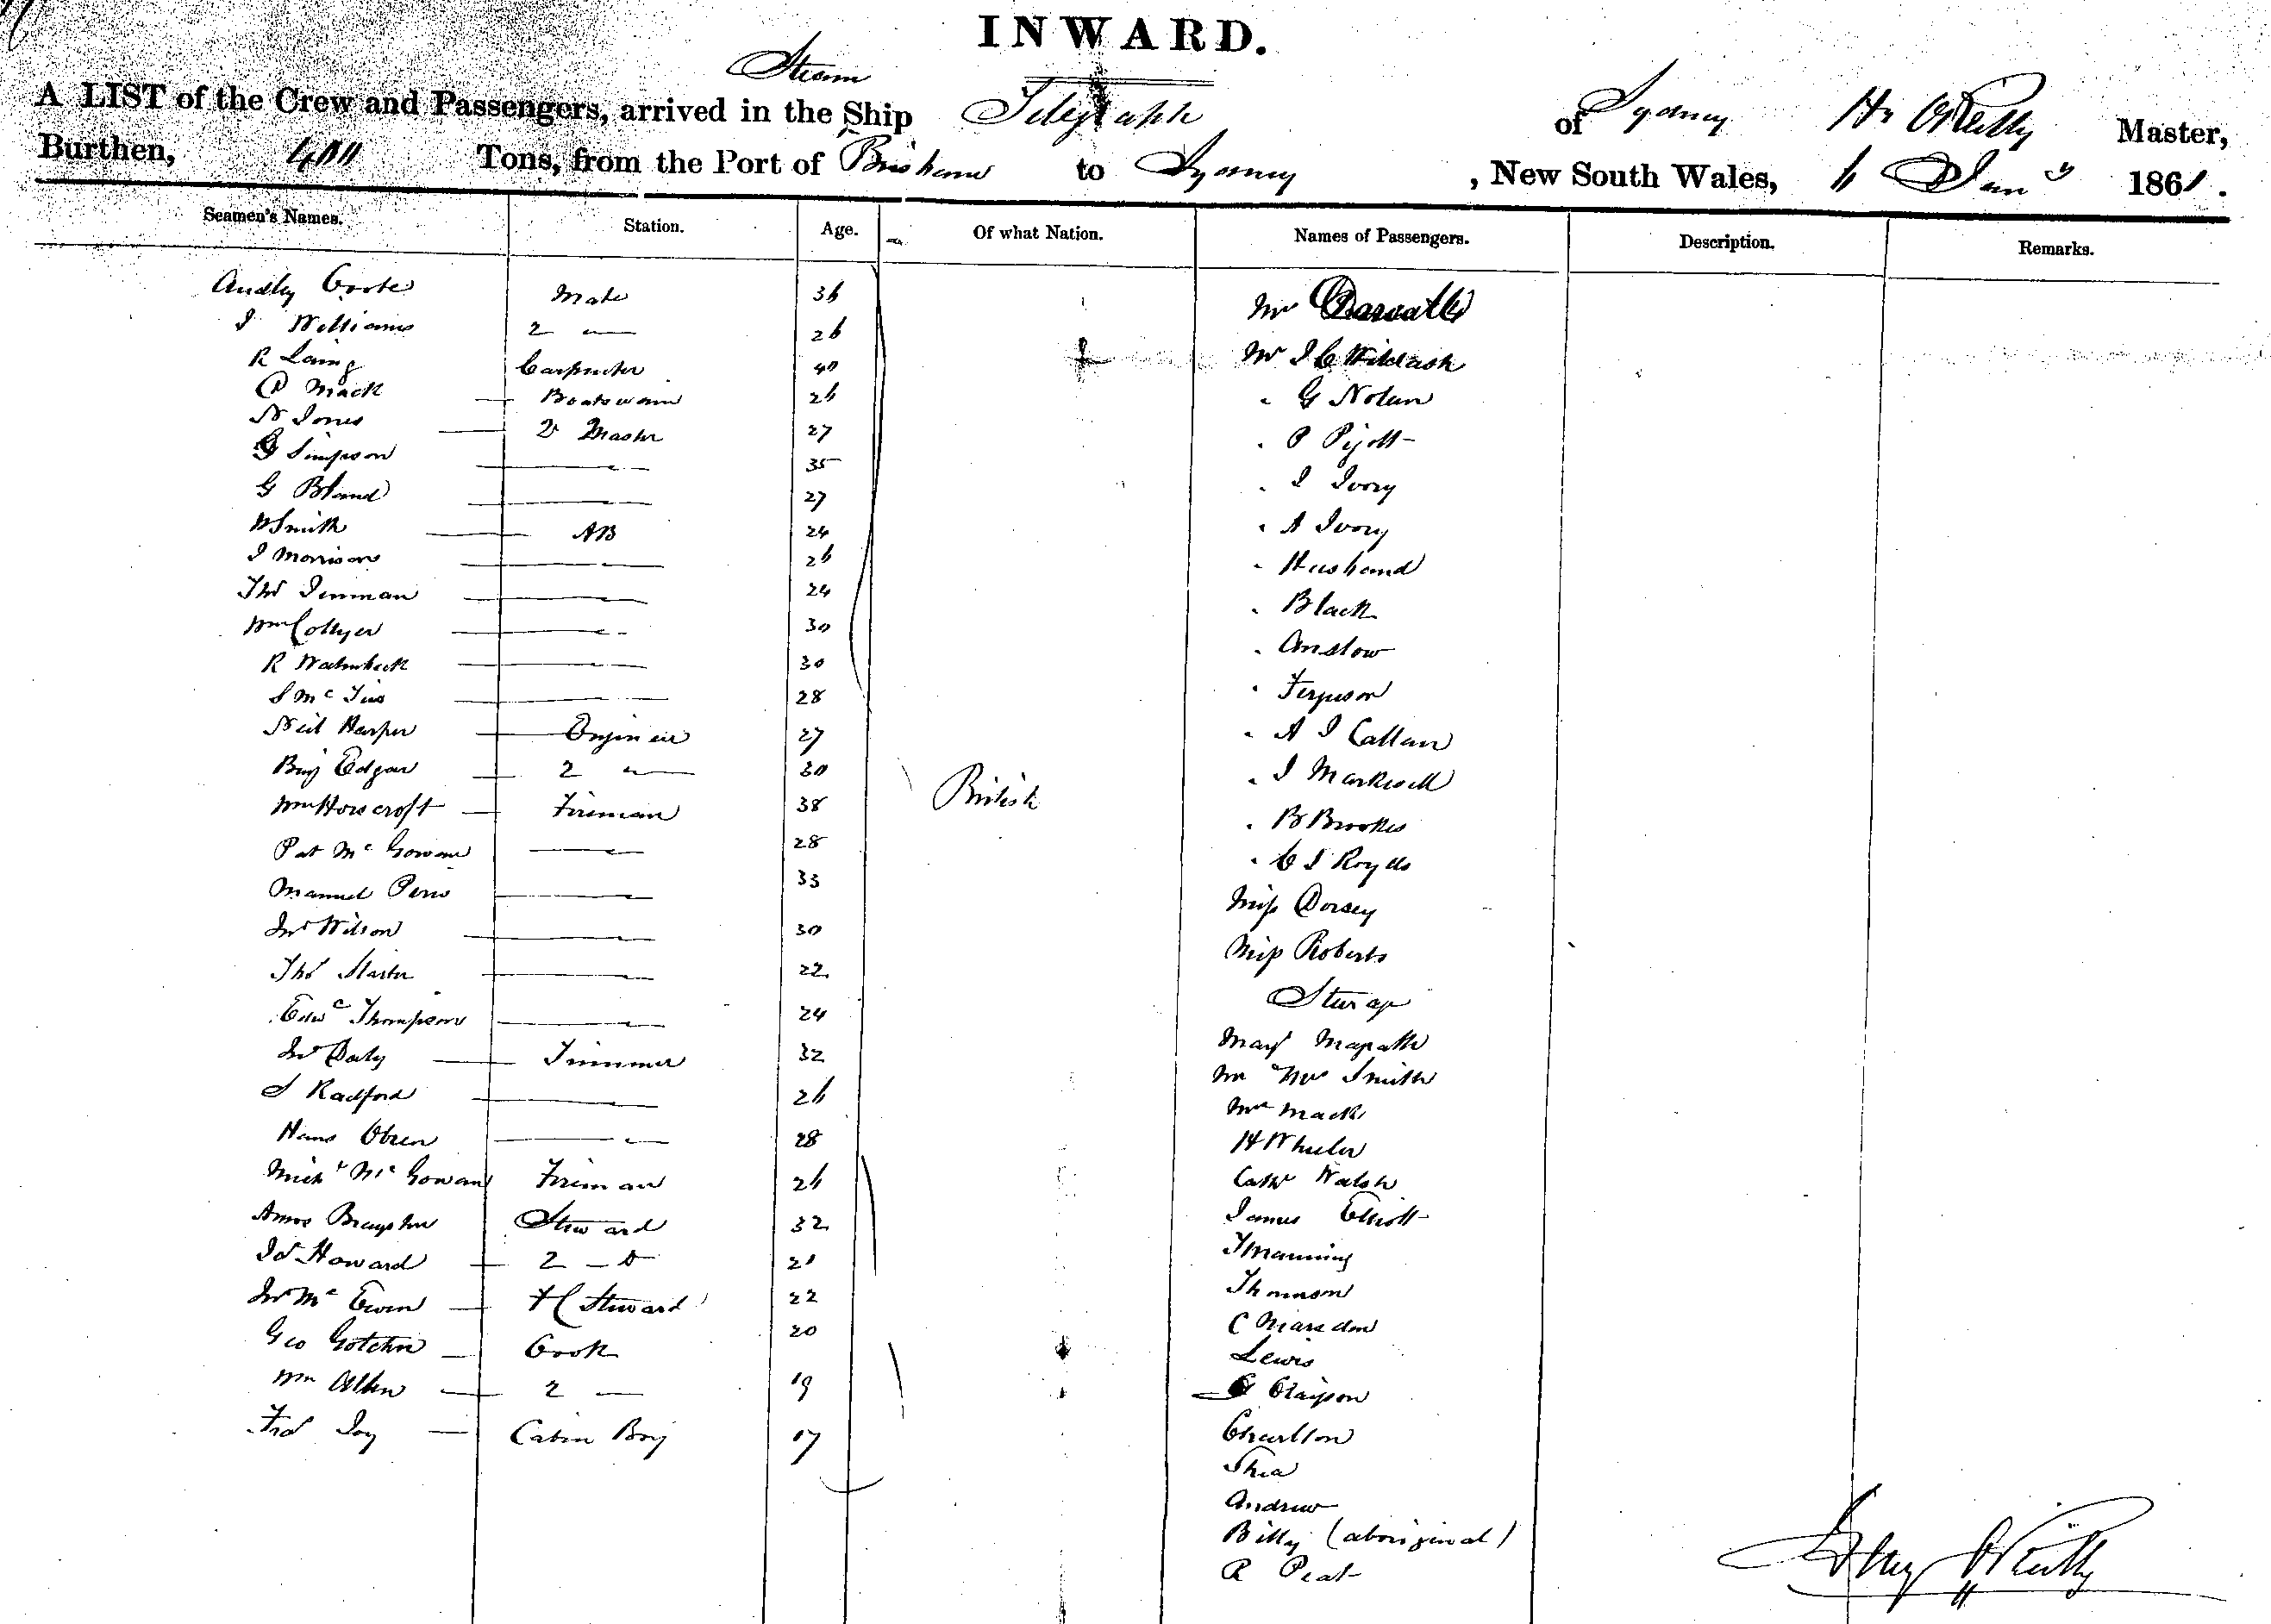 INWARD.
Steam
A LIST of the Crew and Passengers, arrived in the Ship Telegraph of Sydney Hy O'Reilly Master,
Burthen, 400 Tons, from the Port of Brisbane to Sydney, New South Wales, 6 Jany 1861.
Seamen's Names. Station. Age. Of what Nation. Names of Passengers. Description. Remarks.
Audley Coote Mate 36
J Williams 2 — 26
R Laing Carpenter 40
D Mack — Boatswain 26
N Jones — 2 Master 27
G Simpson — 35
G Bland — 27
W Smith — AB 24
J Morrison — 26
Thos Inman — 24
Wm Collyer — 30
R — 30
S Mc — 28
Neil Harper — Engineer 27
Benj Edgar — 2 — 30
Wm Horscroft — Fireman 38
Pat McGowan — 28
Manuel — 33
Jno Wilson — 30
Thos Slater — 22
Edwd Thompson — 24
Jno Daly — Trimmer 32
S Radford — 26
Hans Olsen — 28
Michl McGowan Fireman 26
Amos Steward 32
Jas Howard — 2 — Do 21
Jno McEwen — F C Steward 22
Geo — Cook 20
Wm Allen — 2 — 19
Fred Joy — Cabin Boy 17
British
Mr
Mr J C Wildash
" G Nolan
" P Pigott
" J Ivory
" A Ivory
" Husband
" Black
" Anslow
" Ferguson
" A J Callan
" J Markwell
" B Brookes
" C J Royds
Miss Dorsey
Miss Roberts
Steerage
Mary Magrath
Mr Mrs Smith
Mrs Mack
H Wheeler
Cathe Walsh
James Elliott
T Manning
Thomson
C Marsden
Lewis
G
Charlton
Shea
Andrew
Billy (aboriginal)
R Peat
Henry O'Reilly